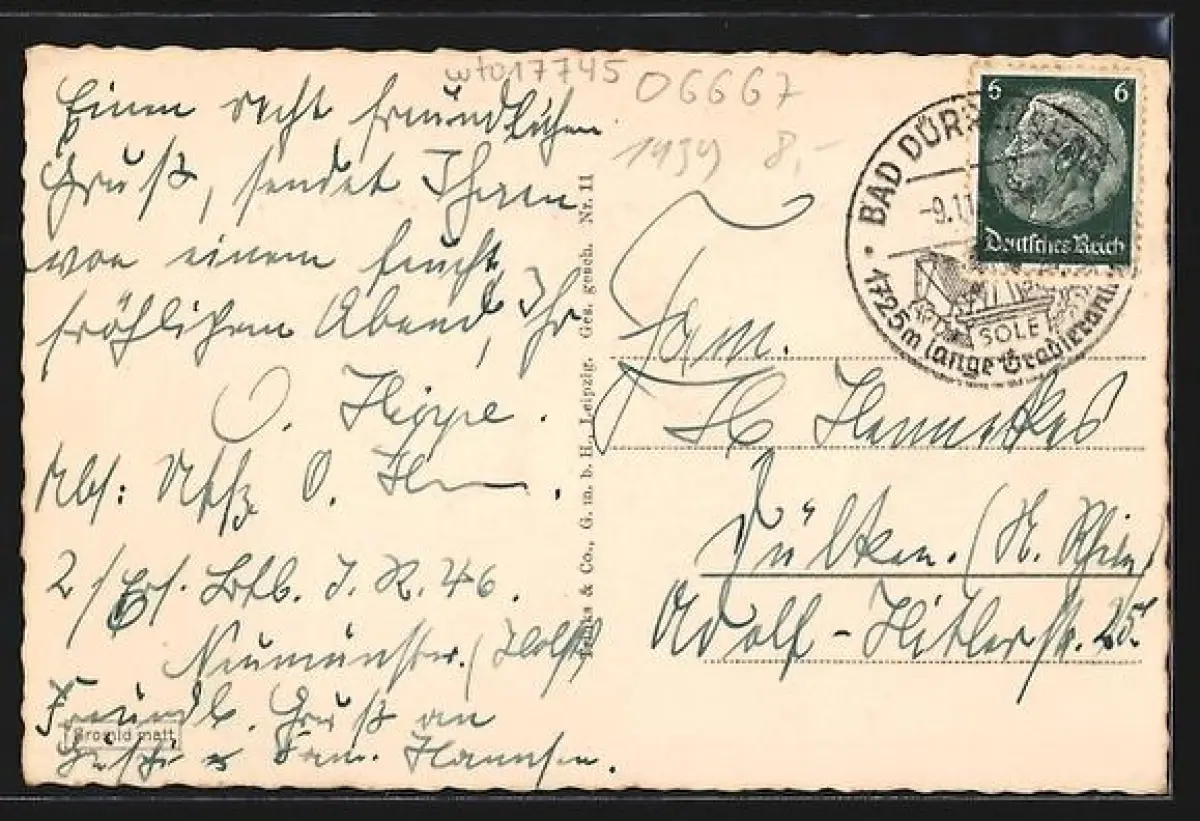 wto17745
06667
1939 8,-
Einen recht freundlichen
Gruß, sendet Ihnen
von einem feucht
fröhlichen Abend, Ihr
O. Hippe.
Abs: Uffz O.
2/Ers. Btl. I.R. 46.
Neumünster. (Holst)
Freundl. Gruß an
Fam. Hannsen.
Bromid matt
& Co., G. m. b. H., Leipzig. Ges. gesch. Nr. 11
6 6
Deutsches Reich
BAD DÜRRENBERG
-9.11
SOLE
1725 m lange Gradieranlage
Fam.
H Hennekes
Dülken. (N. Rhein)
Adolf-Hitlerstr. 25.